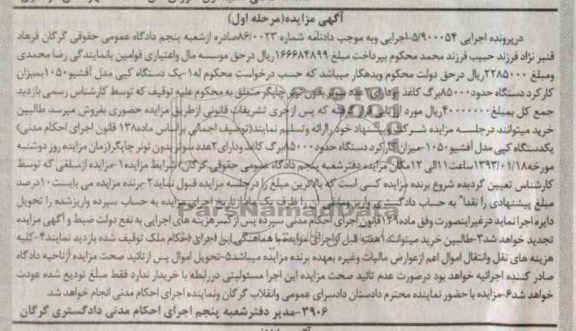 آگهی مزایده(مرحله اول)
درپرونده اجرایی ۵/۹۰۰۰۵۴-اجرایی وبه موجب دادنامه شماره ۸۶/۰۰۲۳صادره ازشعبه پنجم دادگاه عمومی حقوقی گرگان فرهاد
قنبر نژاد فرزند حبیب فرزند محمد محکوم بپرداخت مبلغ ۱۶۶۶۸۴۸۹۹ریال درحق موسسه مال واعتباری قوامین بانمایندگی رضا محمدی
ومبلغ ۲۲۸۵۰۰۰ریال درحق دولت محکوم وبدهکار میباشد که حسب درخواست محکوم له۱-یک دستگاه کپی مدل آفشیو۱۰۵۰بمیزان
کارکرد دستگاه حدود۸۵۰۰۰برگ کاغذ ودارای۲عدد بدون تونر چاپگر متعلق به محکوم علیه توقیف که توسط کارشناس رسمی بازدید
جمع کل بمبلغ۴۰۰۰۰۰۰۰ریال مورد گرفته که پس ازجری تشریفات قانونی ازطریق مزایده حضوری بفروش میرسد طالبین
خرید میتوانند درجلسه مزایده شرکت وپیشنهاد خودراارائه وتسلیم نمایند(توصیف اجمالی براساس ماده۱۳۸ قانون اجرای احکام مدنی)
یکدستگاه کپی مدل آفشیو ۱۰۵۰-میزان کارکرد دستگاه حدود۸۵۰۰۰برگ کاغذ ودارای۲عدد بدون تونر چاپگر(زمان مزایده روز دوشنبه
مورخه۱۳۹۳/۰۱/۱۸ساعت۱۱الی ۱۲مکان مزایده دفترشعبه پنجم دادگاه عمومی حقوقی گرگان) شرایط مزایده۱-مزایده ازمبلغی که توسط
کارشناس تعیین گردیده شروع برنده مزایده کسی است که بالاترین مبلغ را درجلسه مزایده قبول نماید۲-برنده مزایده می بایست ۱۰درصد
مبلغ پیشنهادی را نقدا" به حساب دادگستری ظرف یک ماه از تاریخ اجرای مزایده به حساب سپرده واریزشده را تحویل
دایره اجرا نماید درغیراینصورت وفق ماده۱۲۹قانون اجرای احکام مدنی سپرده پس ازکسرهزینه های اجرایی به نفع دولت ضبط و آگهی مزایده
تجدید خواهد شد۳-طالبین خرید میتوانند قبل ازاجرای مزایده با هماهنگی این اجرای احکام ملک توقیف شده بازدید نمایند۴-کلیه
هزینه های نقل وانتقال اموال اعم ازعوارض مالیات وغیره بعهده برنده مزایده میباشد۵-تحویل اموال پس ازتائید صحت مزایده ازناحیه دادگاه
صادر کننده اجرائیه خواهد بود درصورت عدم تائید صحت مزایده این اجرا مسئولیتی دررابطه با خریدار ندارد فقط مبلغ تودیع شده عودت
خواهد شد۶-مزایده با حضور نماینده محترم دادستان دادسرای عمومی وانقلاب گرگان ونماینده اجرای احکام مدنی انجام خواهد شد.
۳۹۰۶-مدیر دفترشعبه پنجم اجرای احکام مدنی دادگستری گرگان
ParsNamadData